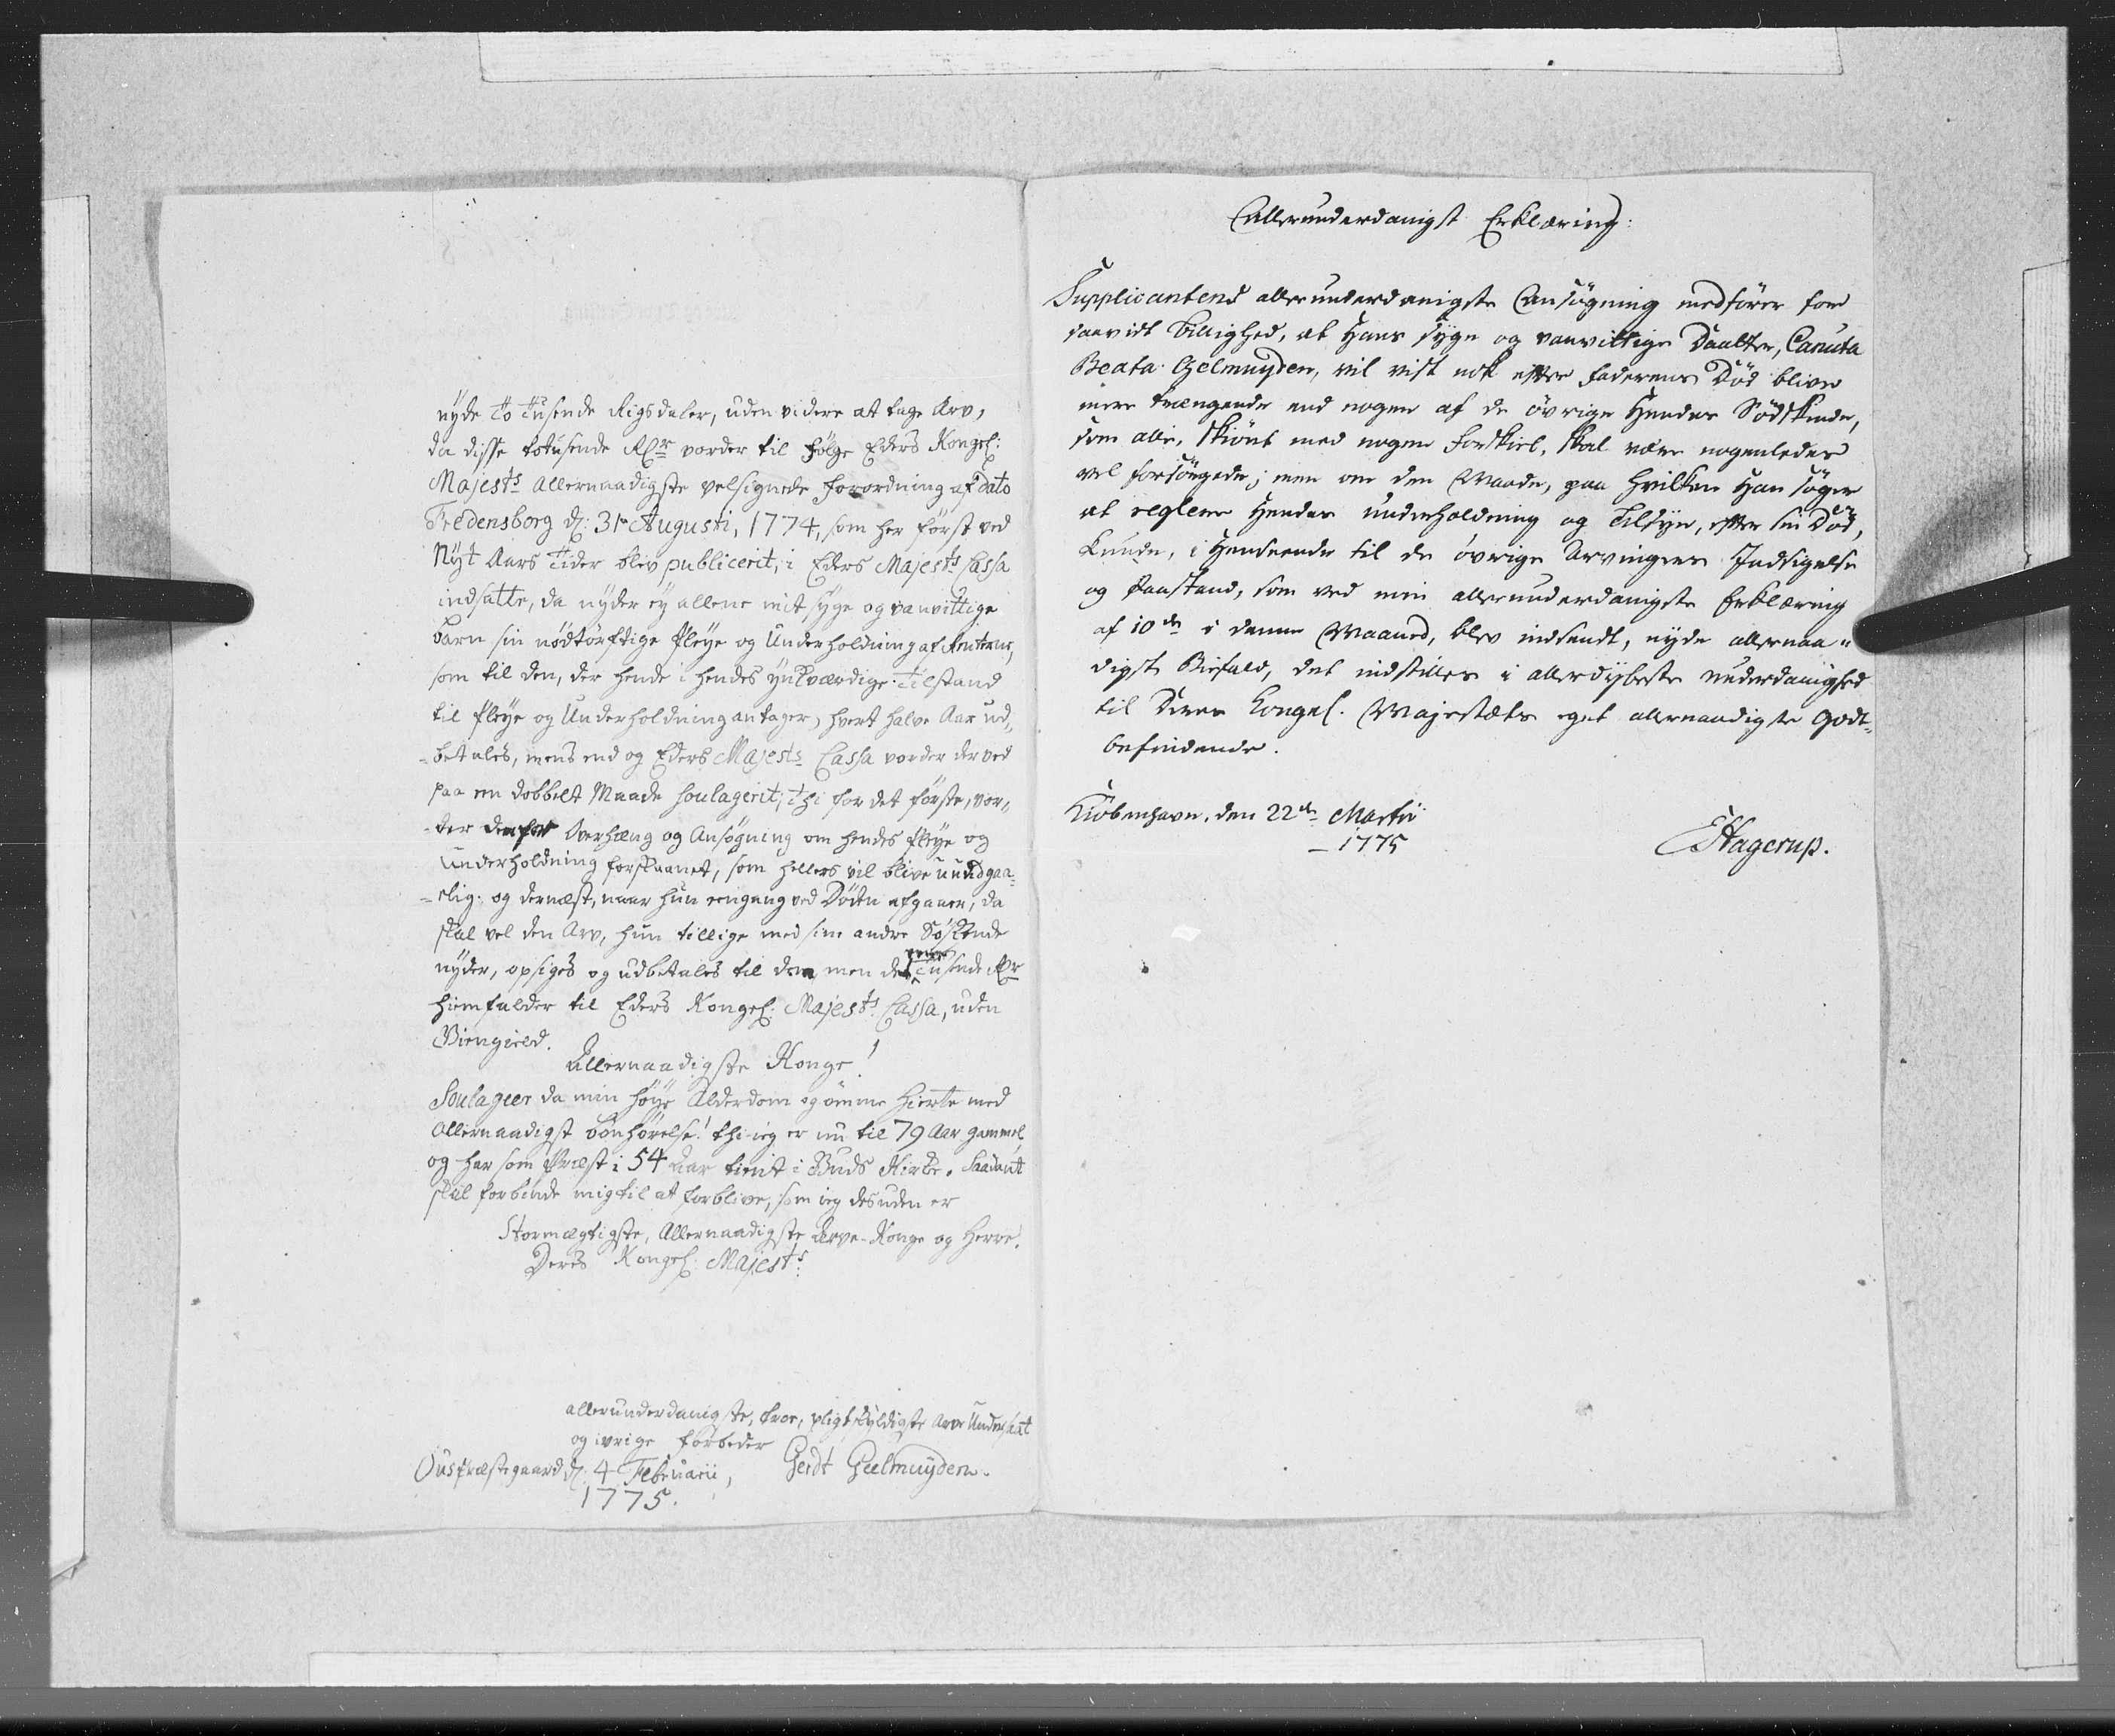 nyde To Tusende Rigsdaler, uden videre at tage Arv,
da disse totusende Rdr vorder til Følge Eders Kongel:
Majests Allernaadigste velsignede Forordning af Dato
Fredensborg d: 31te Augusti, 1774, som her først ved
Nyt Aars Tider blev publicerit, i Eders Majests Cassa
indsatte, da nyder ey allene mit syge og vanvittige
Barn sin nødtørftige Pleye og Underholdning af Renterne,
som til den, der hende i hendes ynkværdige Tilstand
til Pleye og Underholdning antager, hvert halve Aar ud„
-betales, mens end og Eders Majests Cassa vorder derved
paa en dobbelt Maade soulagerit; thi for det første, vor„
-der den for Overhæng og Ansøgning om hendes Pleye og
Underholdning forskaanet, som hellers vil blive uundgaa-
-elig. og dernæst, naar hun eengang ved Døden afgaaer, da
skal vel den Arv, hun tillige med sine andre Søskende
nyder, opsiges og udbetales til dem men det Tusende Rdr
hiemfalder til Eders Kongel: Majests Cassa, uden
Giengield.
Allernaadigste Konge!
Soulageer da min høye Alderdom og ømme Hierte med
Allernaadigst bønhørelse! thi ieg er nu til 79 Aar gammel
og har som Præst i 54 Aar tient i Guds Kirke. Saadant
skal forbinde mig til at forblive, som ieg desuden er
Stormægtigste, Allernaadigste Arve-Konge og Herre!
Deres Kongel: Majests:
allerunderdanigste, troe, pligtskyldigste Arve Undersaat
og ivrige forbeder
Ous Præstegaard d: 4 Februarii, Gerdt Geelmuyden.
1775.
Allerunderdanigst Erklæring:
Supplicantens allerunderdanigste Ansøgning medfører for
saavidt Billighed, at Hans syge og vanvittige Daatter, Canuta
Beata Gelmuyden, vil vist nok efter Faderens Død blive
mere trængende end nogen af de øvrige Hendes Sødskende,
som alle, skiønt med nogen Forskiel, skal være nogenledes
vel forsørgede; men om den Maade, paa hvilken Han søger
at reglere Hendes underholdning og Tilsyn, efter sin Død,
kunde, i Henseende til de øvrige Arvingers Indsigelse
og Paastand, som ved min allerunderdanigste Erklæring
af 10de i denne Maaned, blev indsendt, nyde allernaa-
digst Bifald, det indstilles i allerdybeste underdanighed
til Deres Kongel. Majestæts eget allernaadigste Godt-
befindende.
Kiøbenhavn, den 22de Martii
1775
EHagerup.